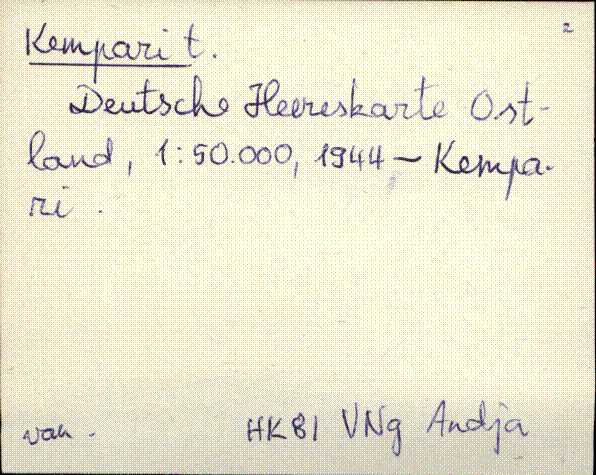 2
Kempari t.
Deutsche Heereskarte Ost-
land, 1:50.000, 1944 — Kempa-
ri.
van. HK81 VNg Andja